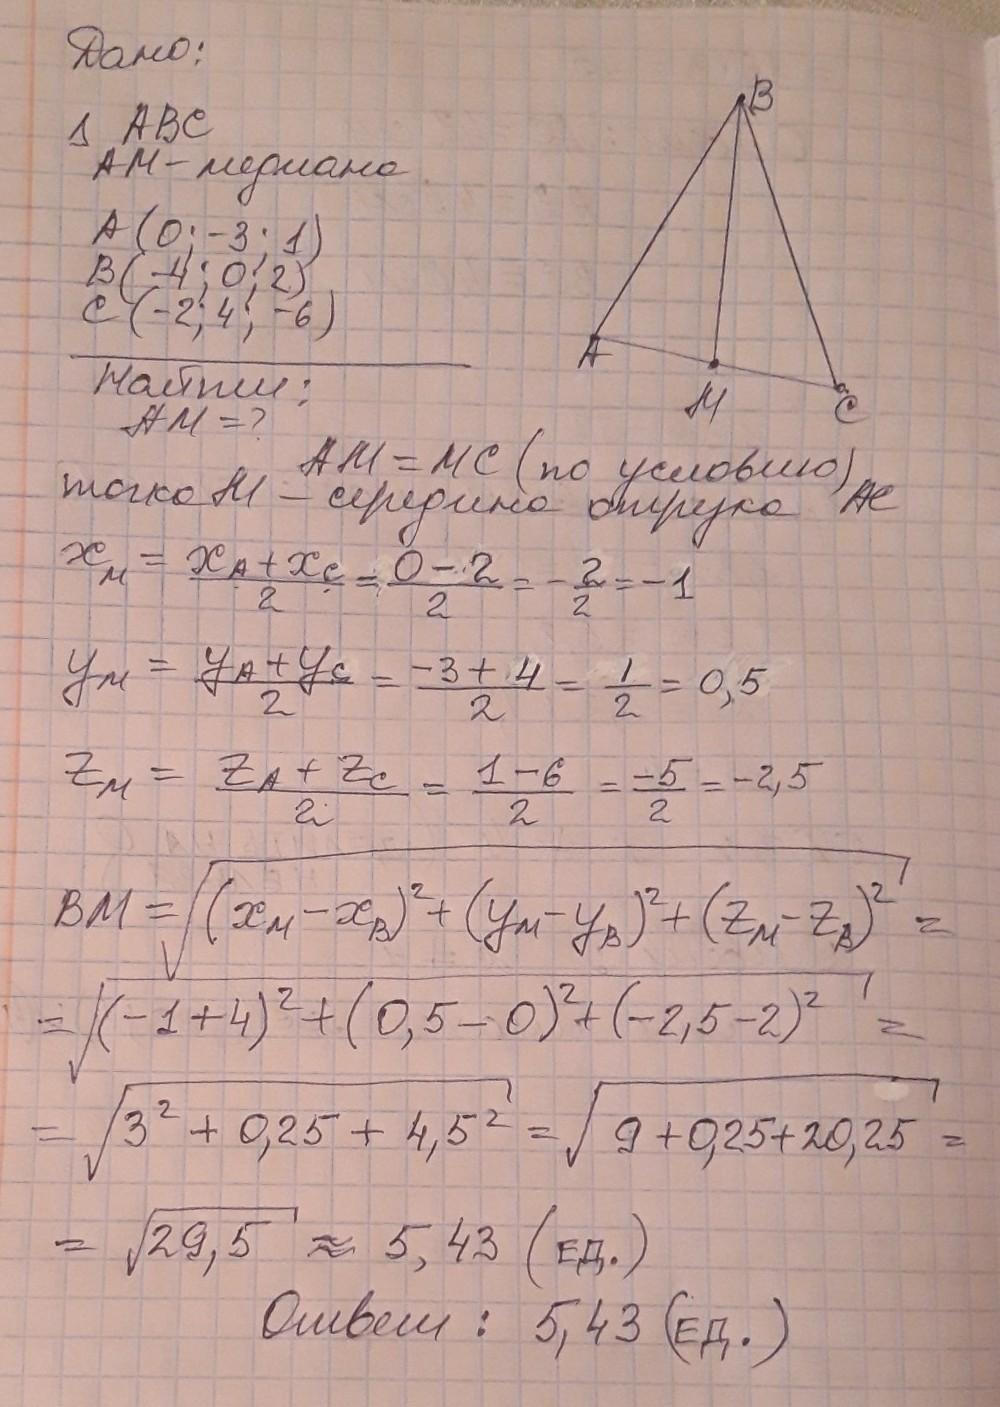 Дано:
1 ABC
AM – медиана
A (0; -3; 1)
B (-4; 0; 2)
C (-2; 4; -6)
Найти:
AM = ?
B
A
M
C
AM = MC (по условию)
точка M – середина отрезка AC
x_M = (x_A + x_C)/2 = (0 - 2)/2 = -2/2 = -1
y_M = (y_A + y_C)/2 = (-3 + 4)/2 = 1/2 = 0,5
z_M = (z_A + z_C)/2 = (1 - 6)/2 = -5/2 = -2,5
BM = √((x_M - x_B)² + (y_M - y_B)² + (z_M - z_B)²) =
= √((-1 + 4)² + (0,5 - 0)² + (-2,5 - 2)²) =
= √(3² + 0,25 + 4,5²) = √(9 + 0,25 + 20,25) =
= √29,5 ≈ 5,43 (ед.)
Ответ: 5,43 (ед.)